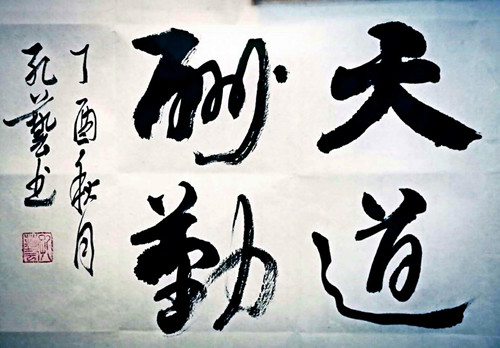 天道
酬勤
丁酉秋月
孔藝书